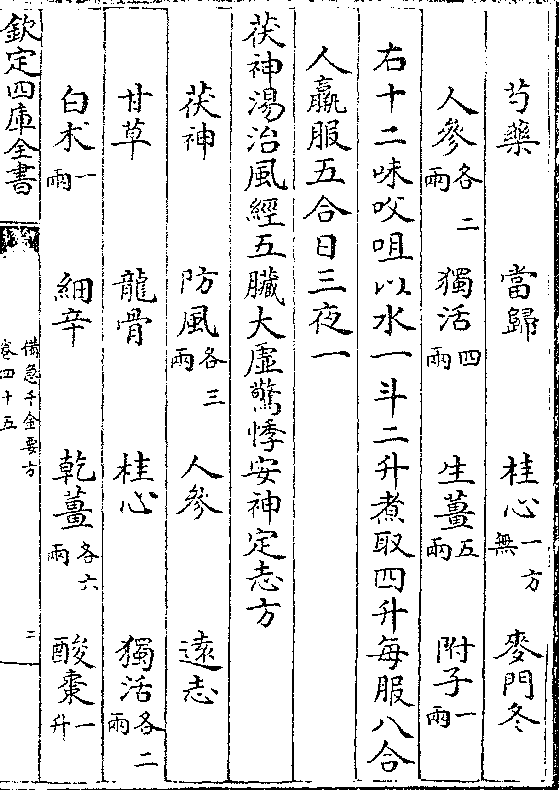 芍藥 當歸 桂心一方無 麥門冬
人參各二兩 獨活四兩 生薑五兩 附子一兩
右十二味㕮咀以水一斗二升煮取四升每服八合
人羸服五合日三夜一
茯神湯治風經五臟大虛驚悸安神定志方
茯神 防風各三兩 人參 遠志
甘草 龍骨 桂心 獨活各二兩
白朮一兩 細辛 乾薑各六兩 酸棗一升
欽定四庫全書
備急千金要方
卷四十五